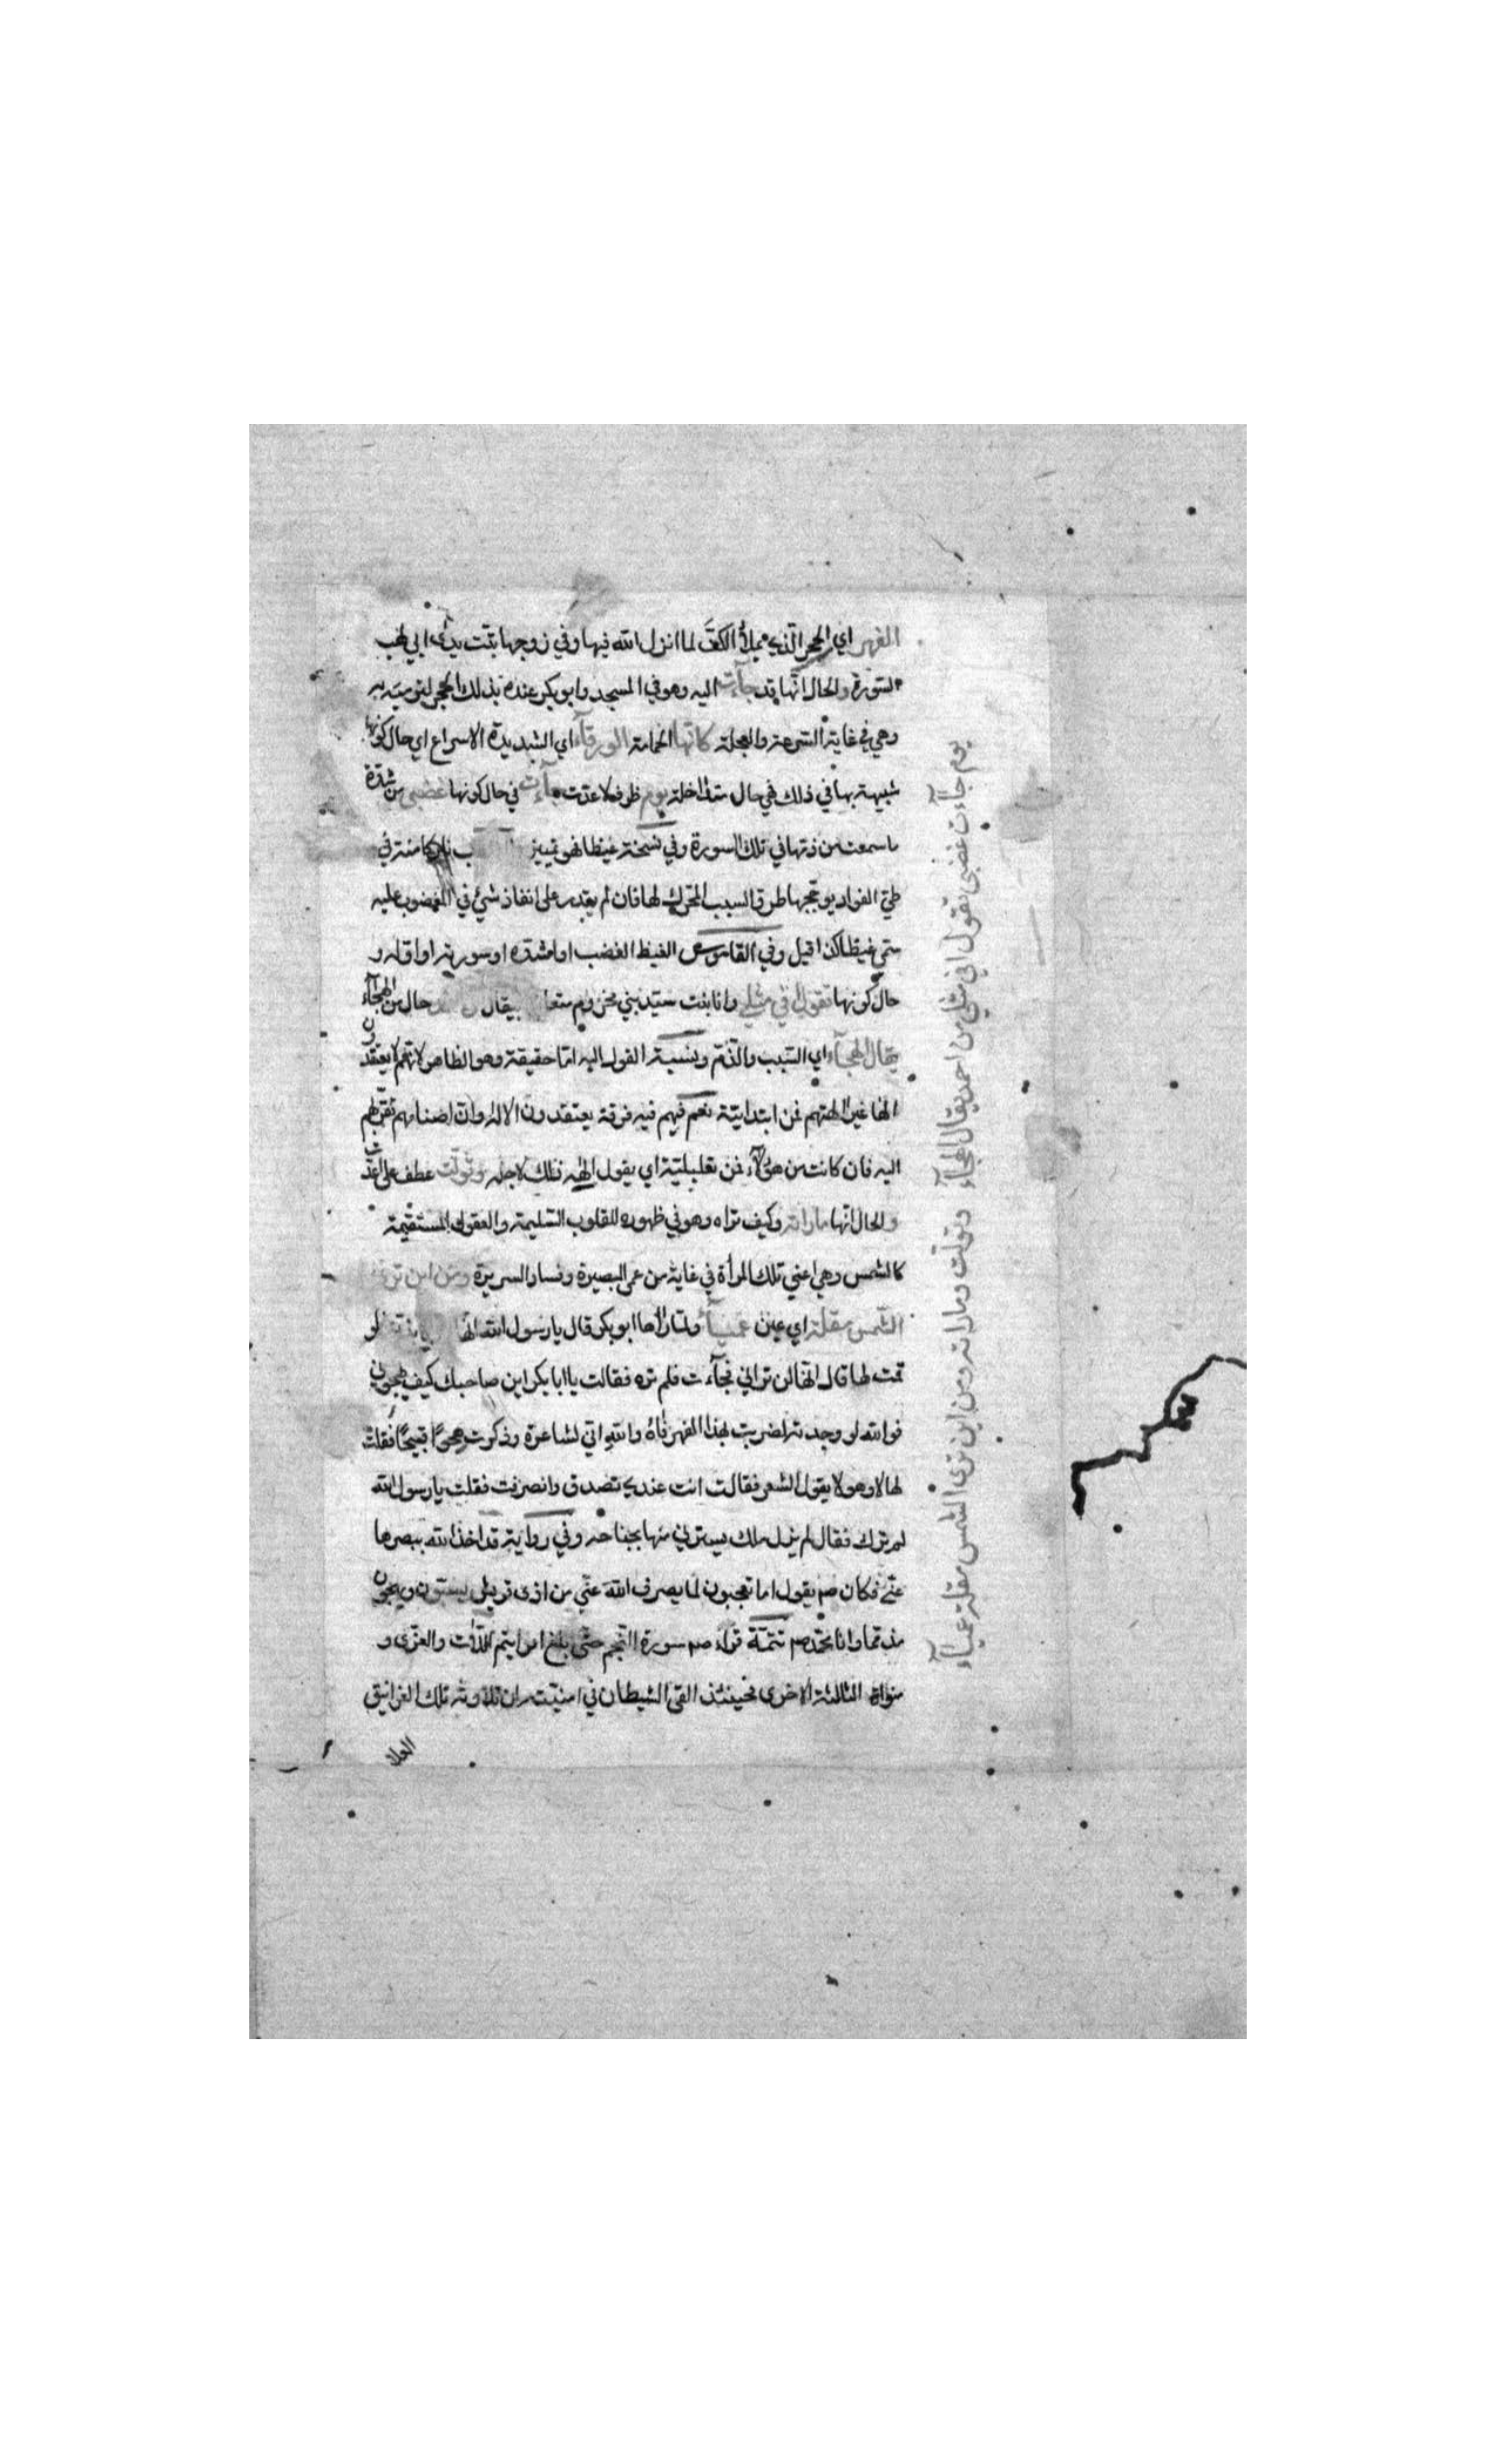 الفهر اي الحجر الذي يملأ الكف لما انزل الله فيها وفي زوجها تبت يدى ابي لهب
السورة والحال انها قد جآءت اليه وهو في المسجد وابو بكر عنده بذلك الحجر لترميه به
وهي في غاية السرعة والعجلة كانها الحمامة الورقآء اي الشديدة الاسراع اي حال كونها
شبيهة بها في ذلك في حال متداخلة يوم ظرف لاعدت جآءت في حال كونها غضبى من شدة
ما سمعت من ذمها في تلك السورة وفي نسخة غيظا فهو تمييز نار كامنة في
طي الفواد يوججها طروّ السبب المحرك لها فان لم يقدر على انفاذ شئ في المغضوب عليه
سمي غيظا كذا قيل وفي القاموس الغيظ الغضب او اشده او سورته او اوله و
حال كونها تقول افي مثلي وانا بنت سيد بني مخزوم يقال حال من الهجآء
يقال الهجآء اي السبب والذم ونسبة القول اليه اما حقيقة وهو الظاهر لانهم لا يعتقدون
الها غير الهتهم فمن ابتدائية نعم فيهم فيه فرقة يعتقدون الاله وان اصنامهم تقربهم
اليه فان كانت من هؤلآء فمن تعليلية اي يقول الهه ذلك لاجله وتولت عطف على اعدت
والحال انها ما راته وكيف تراه وهو في ظهوره للقلوب السليمة والعقول المستقيمة
كالشمس وهي اعني تلك المرأة في غاية من عمى البصيرة وفساد السريرة ومن اين ترى
الشمس مقلة اي عين عميآء ولما رآها ابو بكر قال يا رسول الله انها لو
قمت لها قال انها لن تراني فجآءت فلم تره فقالت يا ابا بكر اين صاحبك كيف يهجوني
فو الله لو وجدته لضربت بهذا الفهر فاه والله اني لشاعرة وذكرت هجوًا قبيحًا فقلت
لها لا وهو لا يقول الشعر فقالت انت عندي تصدق وانصرفت فقلت يا رسول الله
لم ترك فقال لم يزل ملك يسترني منها بجناحه وفي رواية قد اخذ الله ببصرها
عني فكان صم يقول اما تعجبون لما يصرف الله عني من اذى قريش يسبون ويهجون
مذمما وانا محمد صم تتمة قرأ صم سورة النجم حتى بلغ افرايتم اللات والعزى و
منواة الثالثة الاخرى فحينئذ القى الشيطان في امنيته اي تلاوته تلك الغرانيق
العلا
يوم جآءت غضبى تقول افي مثلي من احمد يقال الهجآء وتولت وما راته ومن اين ترى الشمس مقلة عميآء